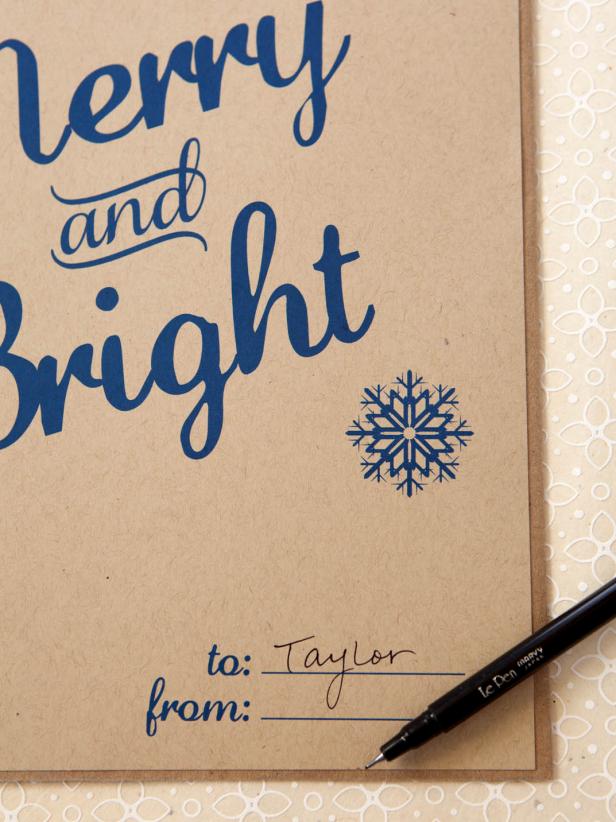 Merry
and
Bright
to: Taylor
from:
Le Pen MARVY JAPAN